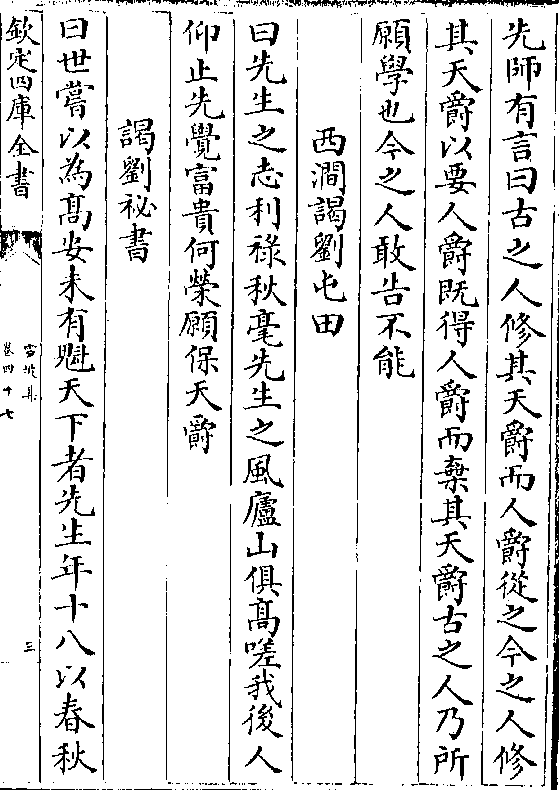 先師有言曰古之人修其天爵而人爵從之今之人修
其天爵以要人爵既得人爵而棄其天爵古之人乃所
願學也今之人敢告不能
西澗謁劉屯田
曰先生之志利祿秋毫先生之風廬山俱髙嗟我後人
仰止先覺富貴何榮願保天爵
謁劉祕書
曰世嘗以為髙安未有魁天下者先生年十八以春秋
欽定四庫全書
雪坡集
卷四十七
三